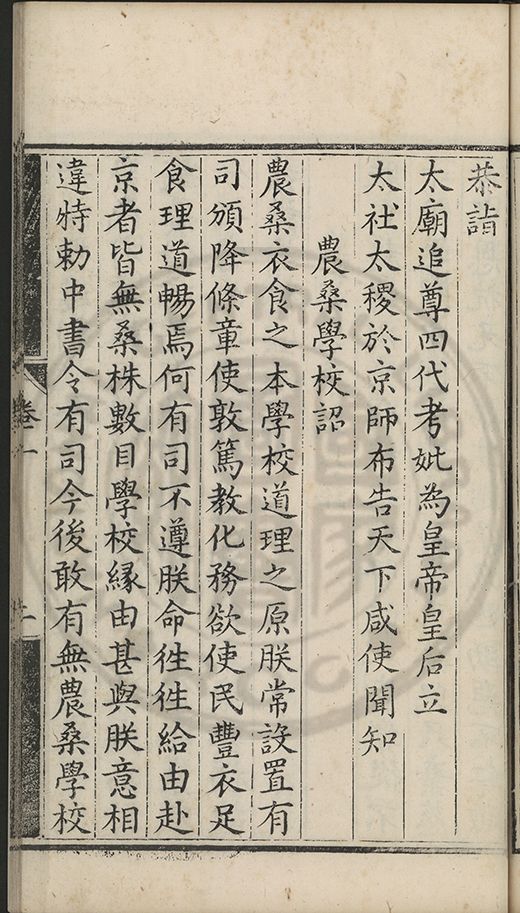 恭詣
太廟追尊四代考妣為皇帝皇后立
太社太稷於京師布告天下咸使聞知
農桑學校詔
農桑衣食之本學校道理之原朕常設置有
司頒降條章使敦篤教化務欲使民豐衣足
食理道暢焉何有司不遵朕命徃徃給由赴
京者皆無桑株數目學校縁由甚與朕意相
違特勅中書令有司今後敢有無農桑學校
卷一